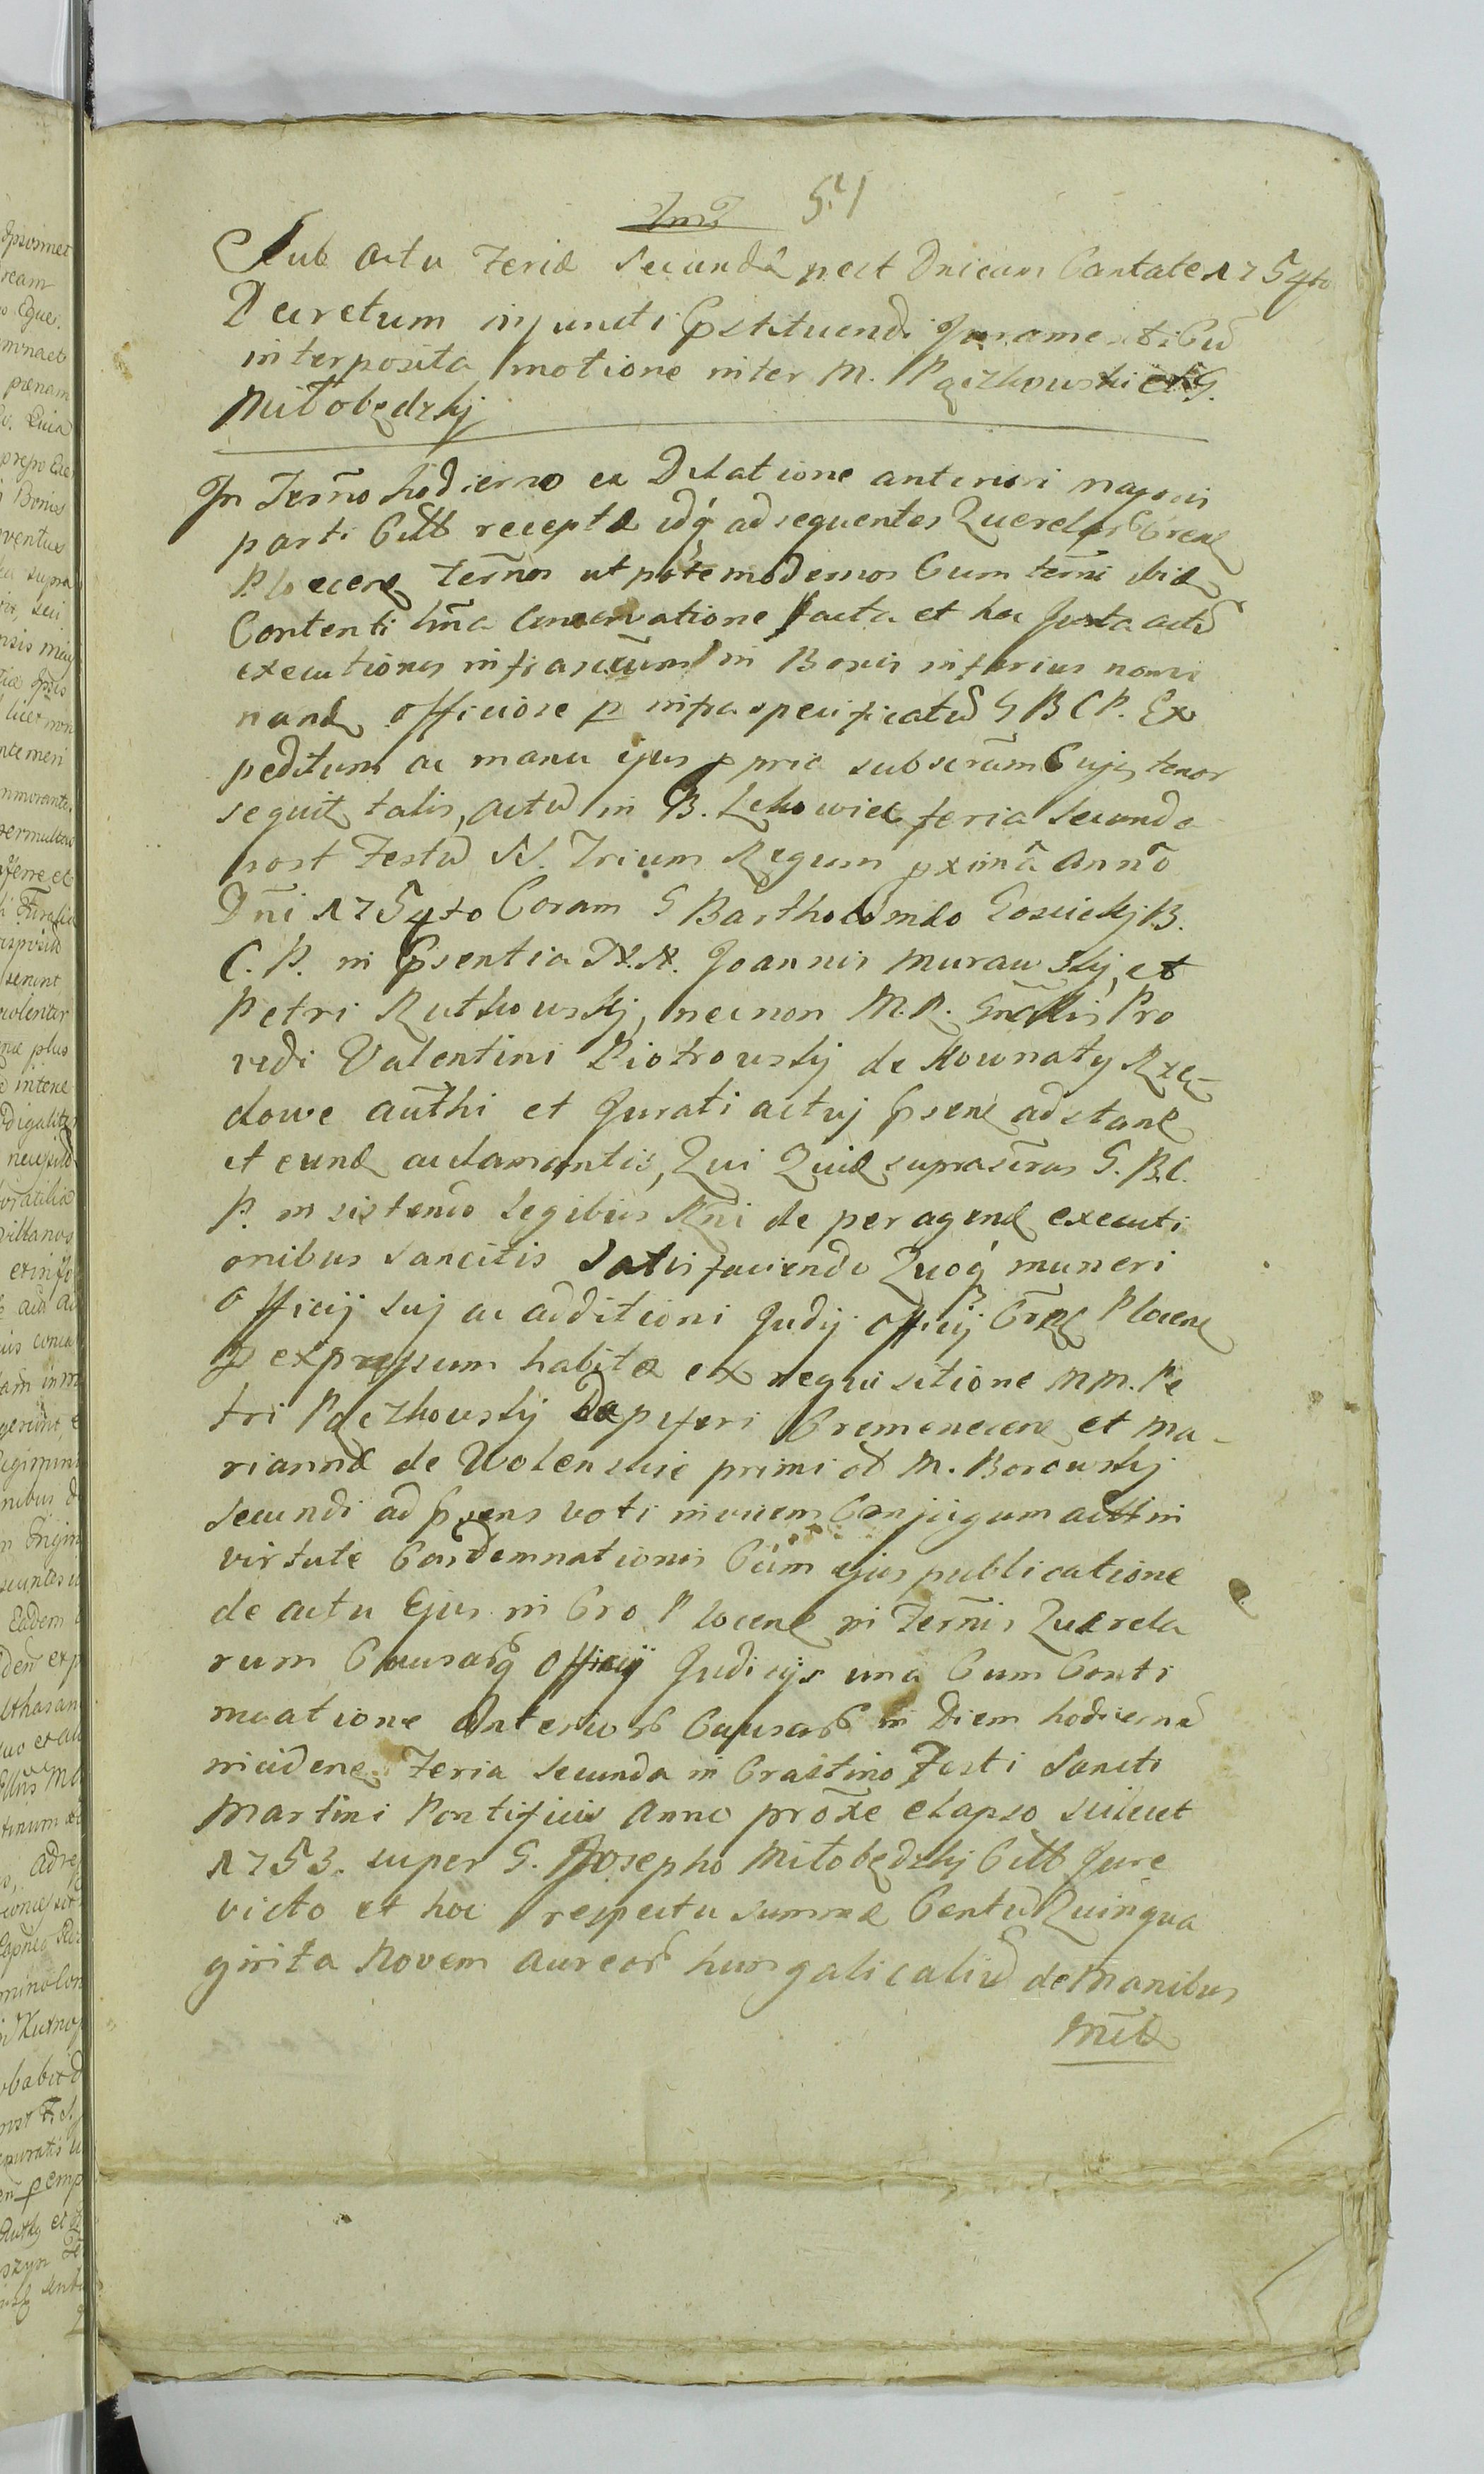 51
Sub Actu Feriæ Secundæ post Dnicam Cantate 1754to
Decretum injuncti Pstituendi Juramenti Cū
interposita motione inter M. Pączkowski et G.
Miłobędzkj
In Terño hodierno ex Dilatione anteriori
parti Citt receptæ idq́ ad sequentes Querelas
Plocen Terños utpote modernos Cum terñi
Contenti Conservatione facta et hoc Juxta actū
executionis in Bonis inferius nomi
nand officiose p infraspecificatū G B C P. Ex
peditum ac manu ejus ppria subscr̃am Cujus tenor
sequit talis, actū in B. Lchowiec feria Secunda
post Festū SS. Trium Regum pxima Anno
Dñi 1754to Coram G Bartholomæo Gosickj B.
C. P. in Psentia N.N. Joannis Murawskj, et
Petri Rutkowskj, necnon M.R. Gñalis Pro
vidi Valentini Piotrowskj de Kownaty Rzę-
dowe auth̃i et Jurati actuj Psen adstan
et eund aclamantis, Qui Quid suprascr̃us G. B.C.
P. insistendo Legibus Rñi de peragend executi
onibus sancitis Satisfaciendo Quoq́ muneri
Officij suj ac additioni Judij Officij Plocen
P expressum habitæ ex requisitione MM. Pe
tri Pączkowskj Dapiferi Cremenecen et Ma-
riannæ de Wolenskie primi od M. Borowskj
secundi ad psens voti invicem Conjugum
virtute Condemnationis Cum ejus publicatione
de actu Ejus in Cro Plocen in Terñis Querela
rum Causarq Officij Judicijs una Cum Conti
nuatione Anterior Causar in Diem hodiernā
inciden Feria Secunda in Crastino Festi Sancti
Martini Pontificis Anno prox̃e elapso scilicet
1753. super G. Josepho Miłobędzkj Citt Jure
victo et hoc respectu summæ Centū Quinqua
ginta Novem Aureor hungalicaliū de Manibus